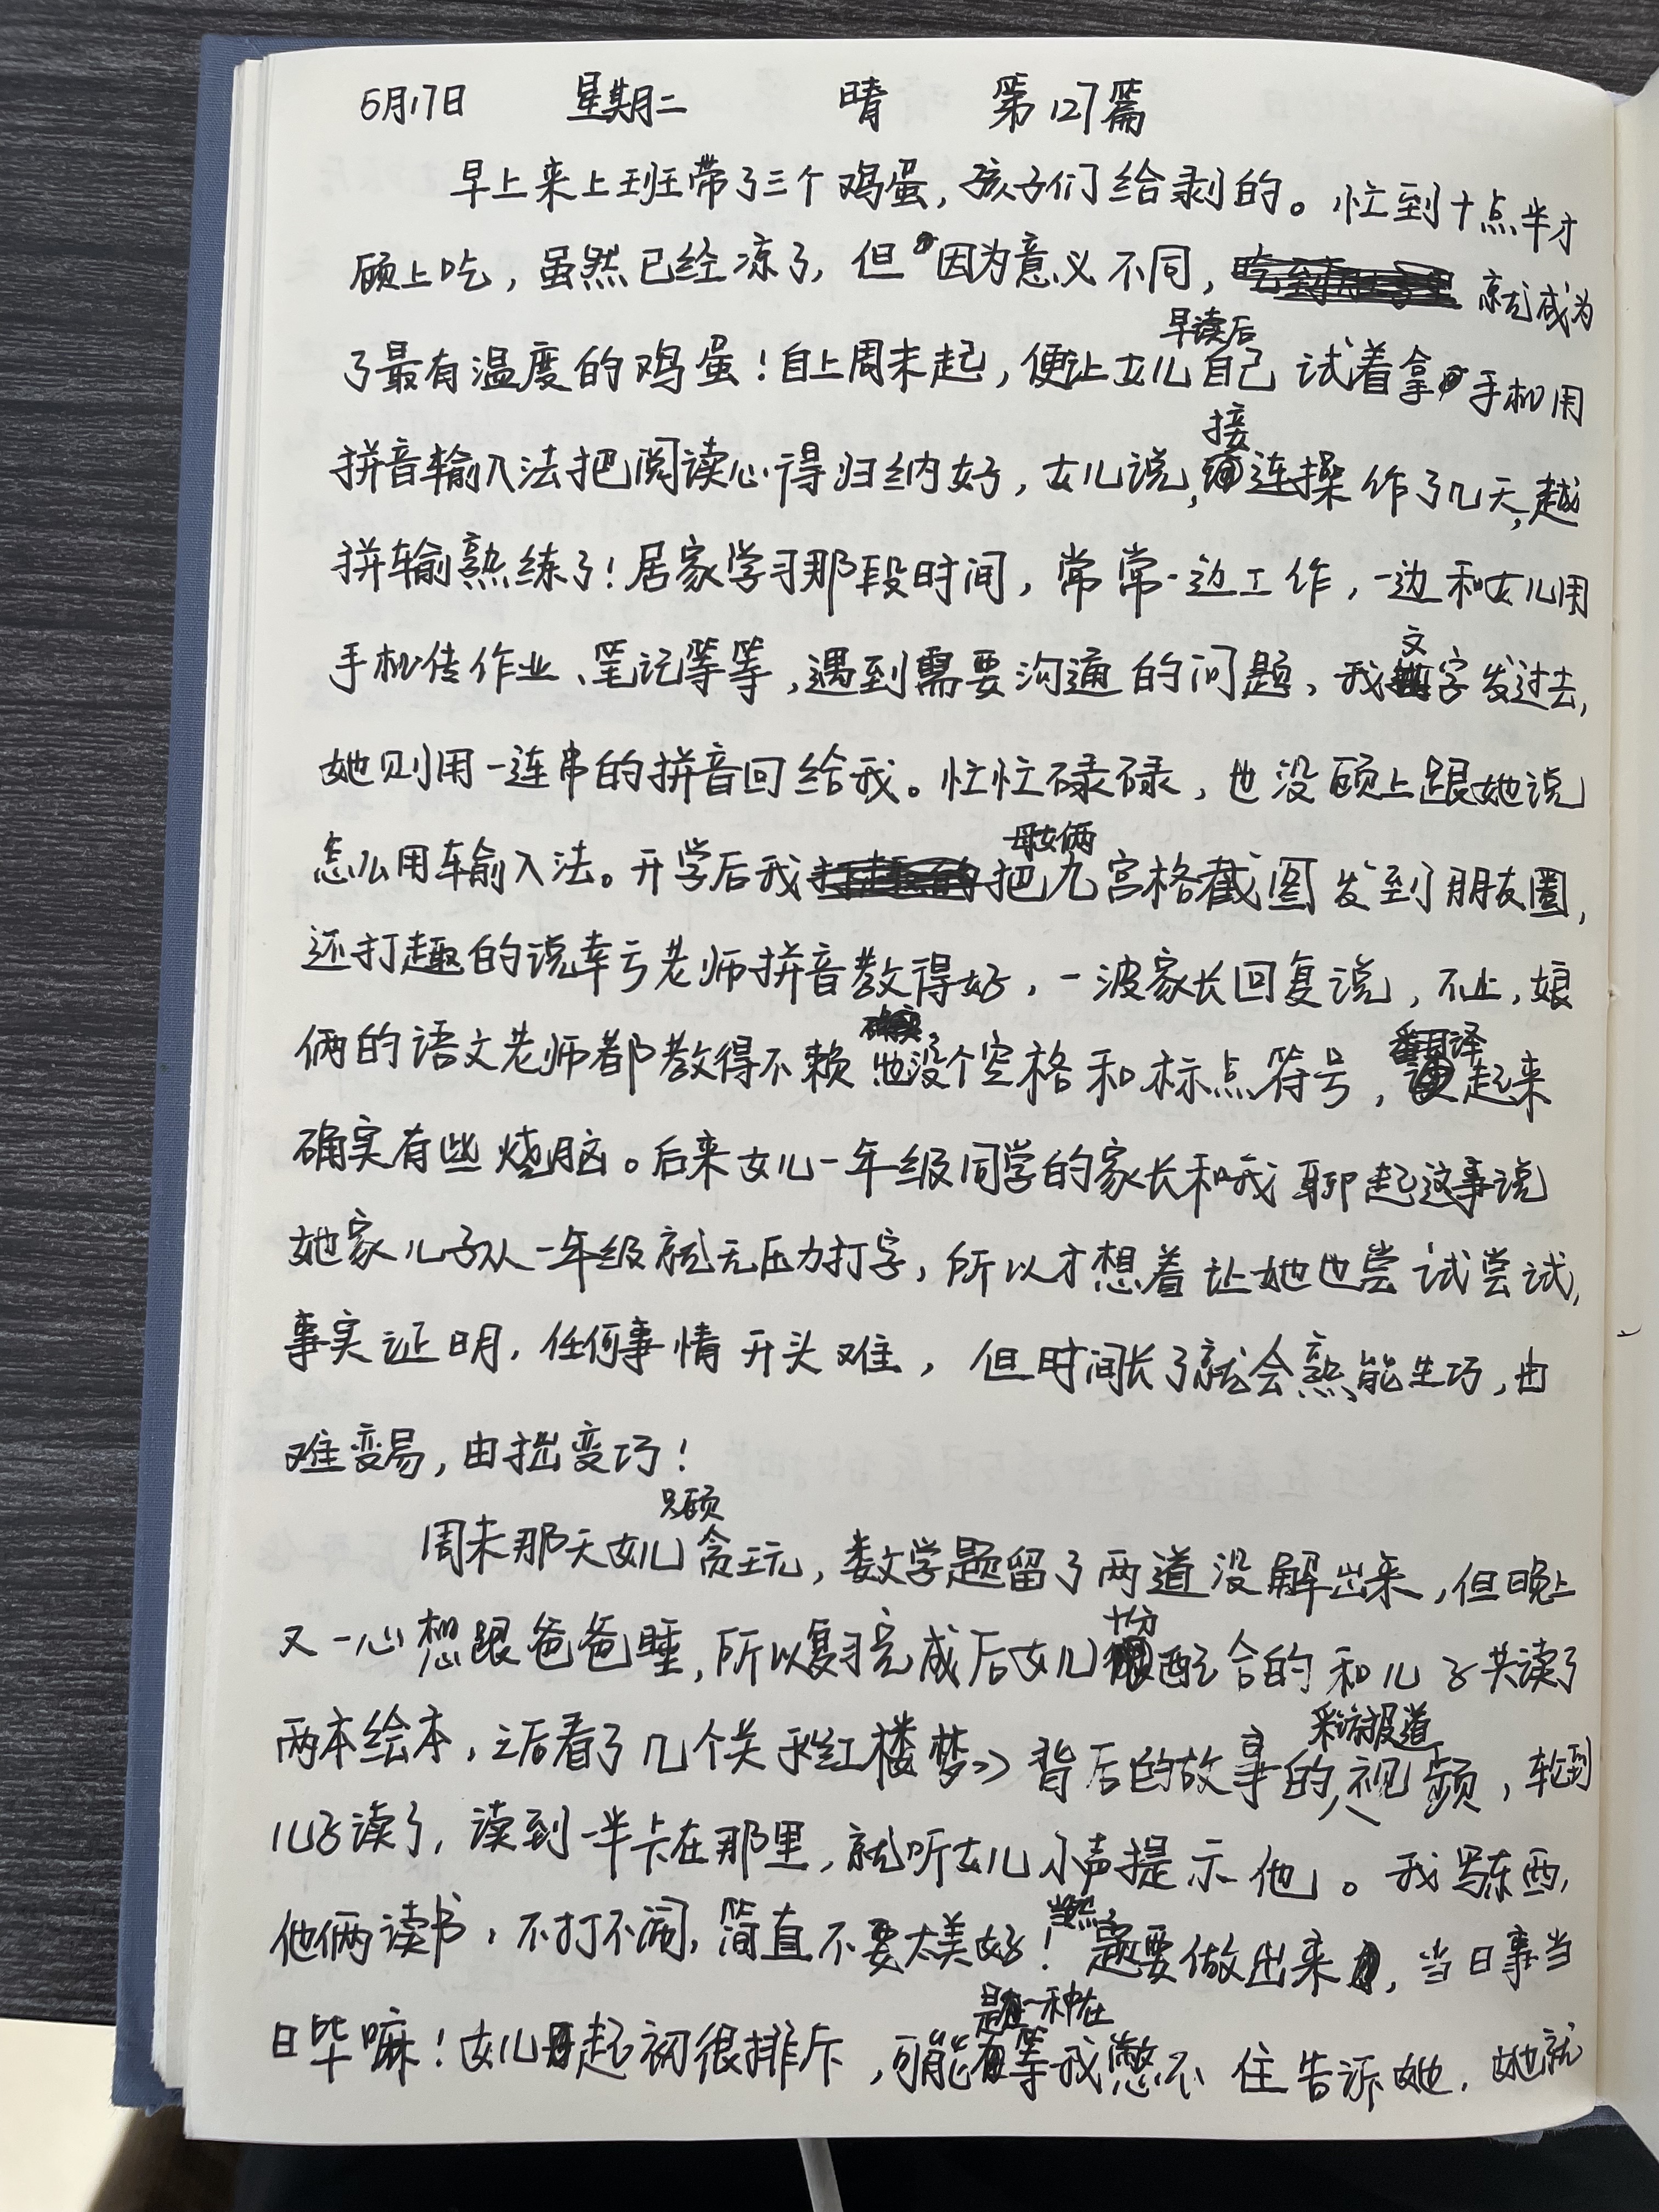 5月17日 星期二 晴 第127篇
早上来上班带了三个鸡蛋,孩子们给剥的。忙到十点半才
顾上吃,虽然已经凉了,但因为意义不同,就成为
了最有温度的鸡蛋!自上周末起,便让女儿早读后自己试着拿手机用
拼音输入法把阅读心得归纳好,女儿说,接连操作了几天,越
拼输熟练了!居家学习那段时间,常常一边工作,一边和女儿用
手机传作业、笔记等等,遇到需要沟通的问题,我文字发过去,
她则用一连串的拼音回给我。忙忙碌碌,也没顾上跟她说
怎么用输入法。开学后我把母女俩九宫格截图发到朋友圈,
还打趣的说幸亏老师拼音教得好,一波家长回复说,不止,娘
俩的语文老师都教得不赖,也没个空格和标点符号,翻译起来
确实有些烧脑。后来女儿一年级同学的家长和我聊起这事说
她家儿子从一年级就无压力打字,所以才想着让她也尝试尝试,
事实证明,任何事情开头难,但时间长了就会熟能生巧,由
难变易,由拙变巧!
周末那天女儿只顾贪玩,数学题留了两道没解出来,但晚上
又一心想跟爸爸睡,所以复习完成后女儿十分配合的和儿子共读了
两本绘本,之后看了几个关于红楼梦》背后的故事的采访报道视频,轮到
儿子读了,读到一半卡在那里,就听女儿小声提示他。我写东西,
他俩读书,不打不闹,简直不要太美好!当然,题要做出来,当日事当
日毕嘛!女儿起初很排斥,可能是一种在等我憋不住告诉她,她就